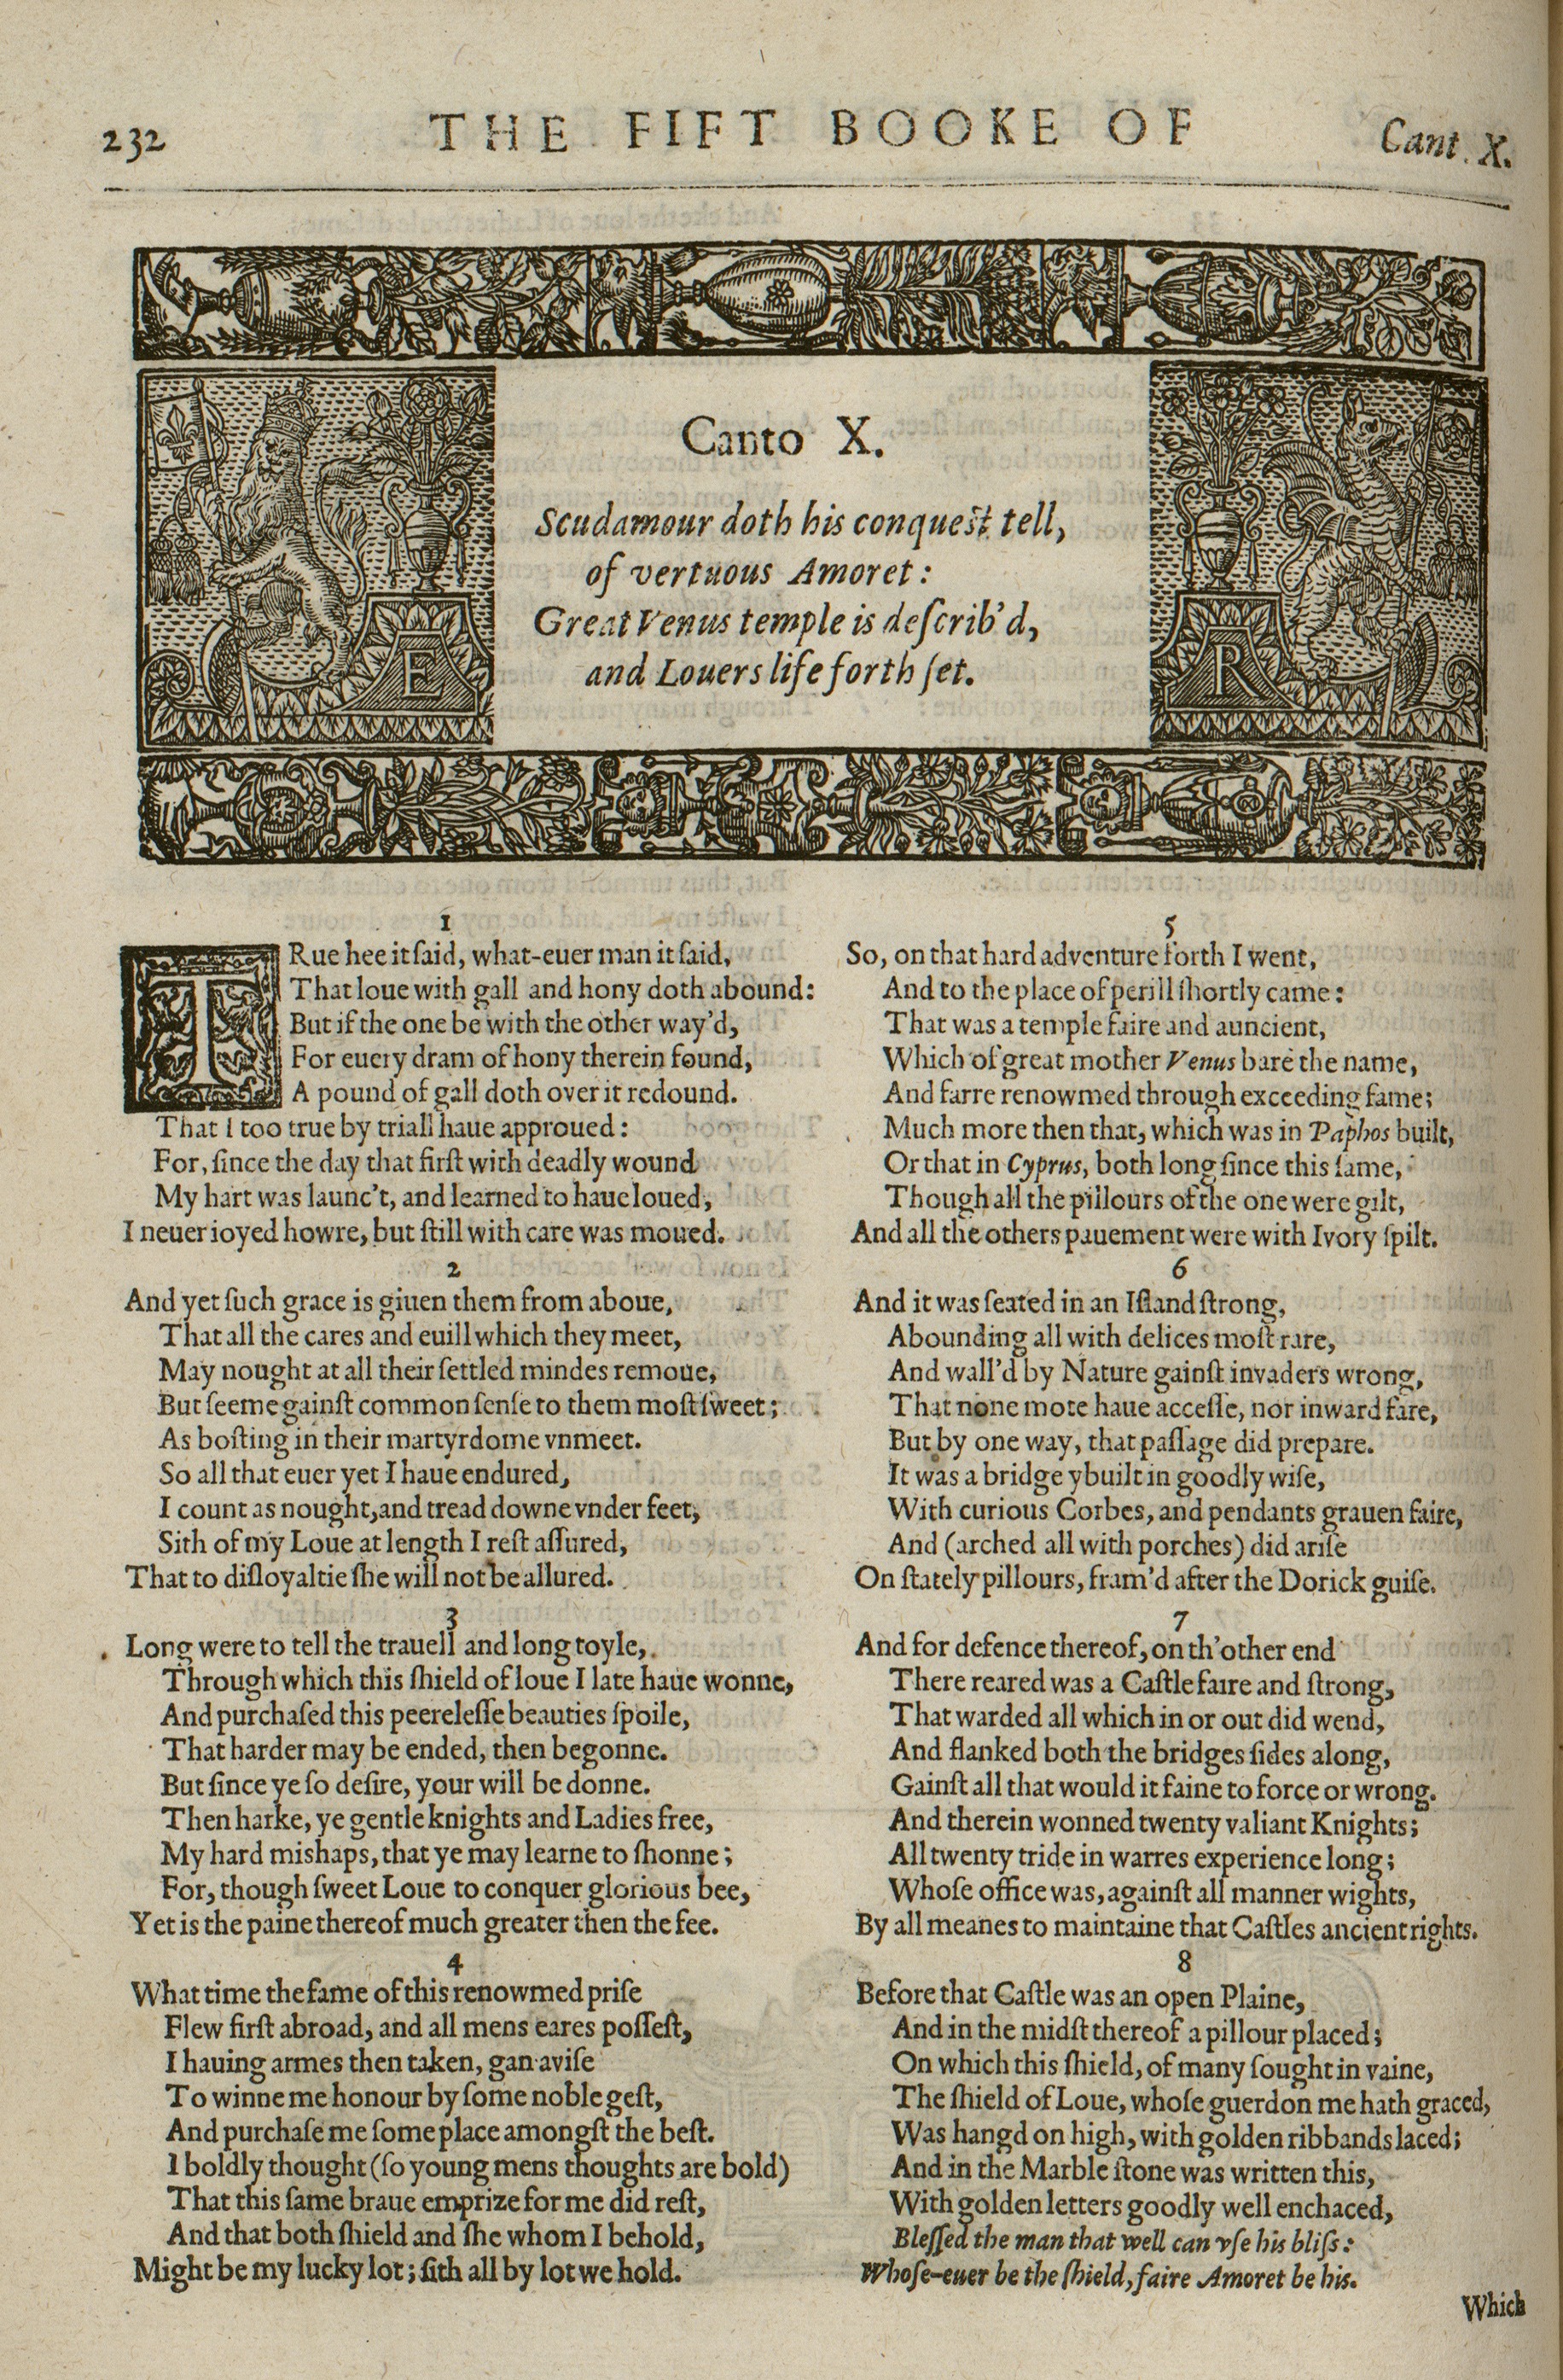 232 THE FIFT BOOKE OF Cant. X.
Canto X.
Scudamour doth his conquest tell,
of vertuous Amoret:
Great Venus temple is deſcrib'd,
and Louers life forth ſet.
E
R
1
TRue hee it ſaid, what-euer man it ſaid,
That loue with gall and hony doth abound:
But if the one be with the other way'd,
For euery dram of hony therein found,
A pound of gall doth over it redound.
That I too true by triall haue approued:
For, ſince the day that firſt with deadly wound
My hart was launc't, and learned to haue loued,
I neuer ioyed howre, but ſtill with care was moued.
2
And yet ſuch grace is giuen them from aboue,
That all the cares and euill which they meet,
May nought at all their ſettled mindes remoue,
But ſeeme gainſt common ſenſe to them moſt ſweet;
As boſting in their martyrdome vnmeet.
So all that euer yet I haue endured,
I count as nought, and tread downe vnder feet,
Sith of my Loue at length I reſt aſſured,
That to diſloyaltie ſhe will not be allured.
3
Long were to tell the trauell and long toyle,
Through which this ſhield of loue I late haue wonne,
And purchaſed this peereleſſe beauties ſpoile,
That harder may be ended, then begonne.
But ſince ye ſo deſire, your will be donne.
Then harke, ye gentle knights and Ladies free,
My hard mishaps, that ye may learne to ſhonne;
For, though ſweet Loue to conquer glorious bee,
Yet is the paine thereof much greater then the fee.
4
What time the fame of this renowmed priſe
Flew firſt abroad, and all mens eares poſſeſt,
I hauing armes then taken, gan aviſe
To winne me honour by ſome noble geſt,
And purchaſe me ſome place amongſt the beſt.
I boldly thought (ſo young mens thoughts are bold)
That this ſame braue emprize for me did reſt,
And that both ſhield and ſhe whom I behold,
Might be my lucky lot; ſith all by lot we hold.
5
So, on that hard adventure forth I went,
And to the place of perill ſhortly came:
That was a temple faire and auncient,
Which of great mother Venus bare the name,
And farre renowmed through exceeding fame;
Much more then that, which was in Paphos built,
Or that in Cyprus, both long ſince this ſame,
Though all the pillours of the one were gilt,
And all the others pauement were with Ivory ſpilt.
6
And it was ſeated in an Iſland ſtrong,
Abounding all with delices moſt rare,
And wall'd by Nature gainſt invaders wrong,
That none mote haue acceſſe, nor inward fare,
But by one way, that paſſage did prepare.
It was a bridge ybuilt in goodly wiſe,
With curious Corbes, and pendants grauen faire,
And (arched all with porches) did ariſe
On ſtately pillours, fram'd after the Dorick guiſe.
7
And for defence thereof, on th'other end
There reared was a Caſtle faire and ſtrong,
That warded all which in or out did wend,
And flanked both the bridges ſides along,
Gainſt all that would it faine to force or wrong.
And therein wonned twenty valiant Knights;
All twenty tride in warres experience long;
Whoſe office was, againſt all manner wights,
By all meanes to maintaine that Caſtles ancient rights.
8
Before that Caſtle was an open Plaine,
And in the midſt thereof a pillour placed;
On which this ſhield, of many ſought in vaine,
The ſhield of Loue, whoſe guerdon me hath graced,
Was hangd on high, with golden ribbands laced;
And in the Marble ſtone was written this,
With golden letters goodly well enchaced,
Bleſſed the man that well can vſe his bliſs:
Whoſe-euer be the ſhield, faire Amoret be his.
Which